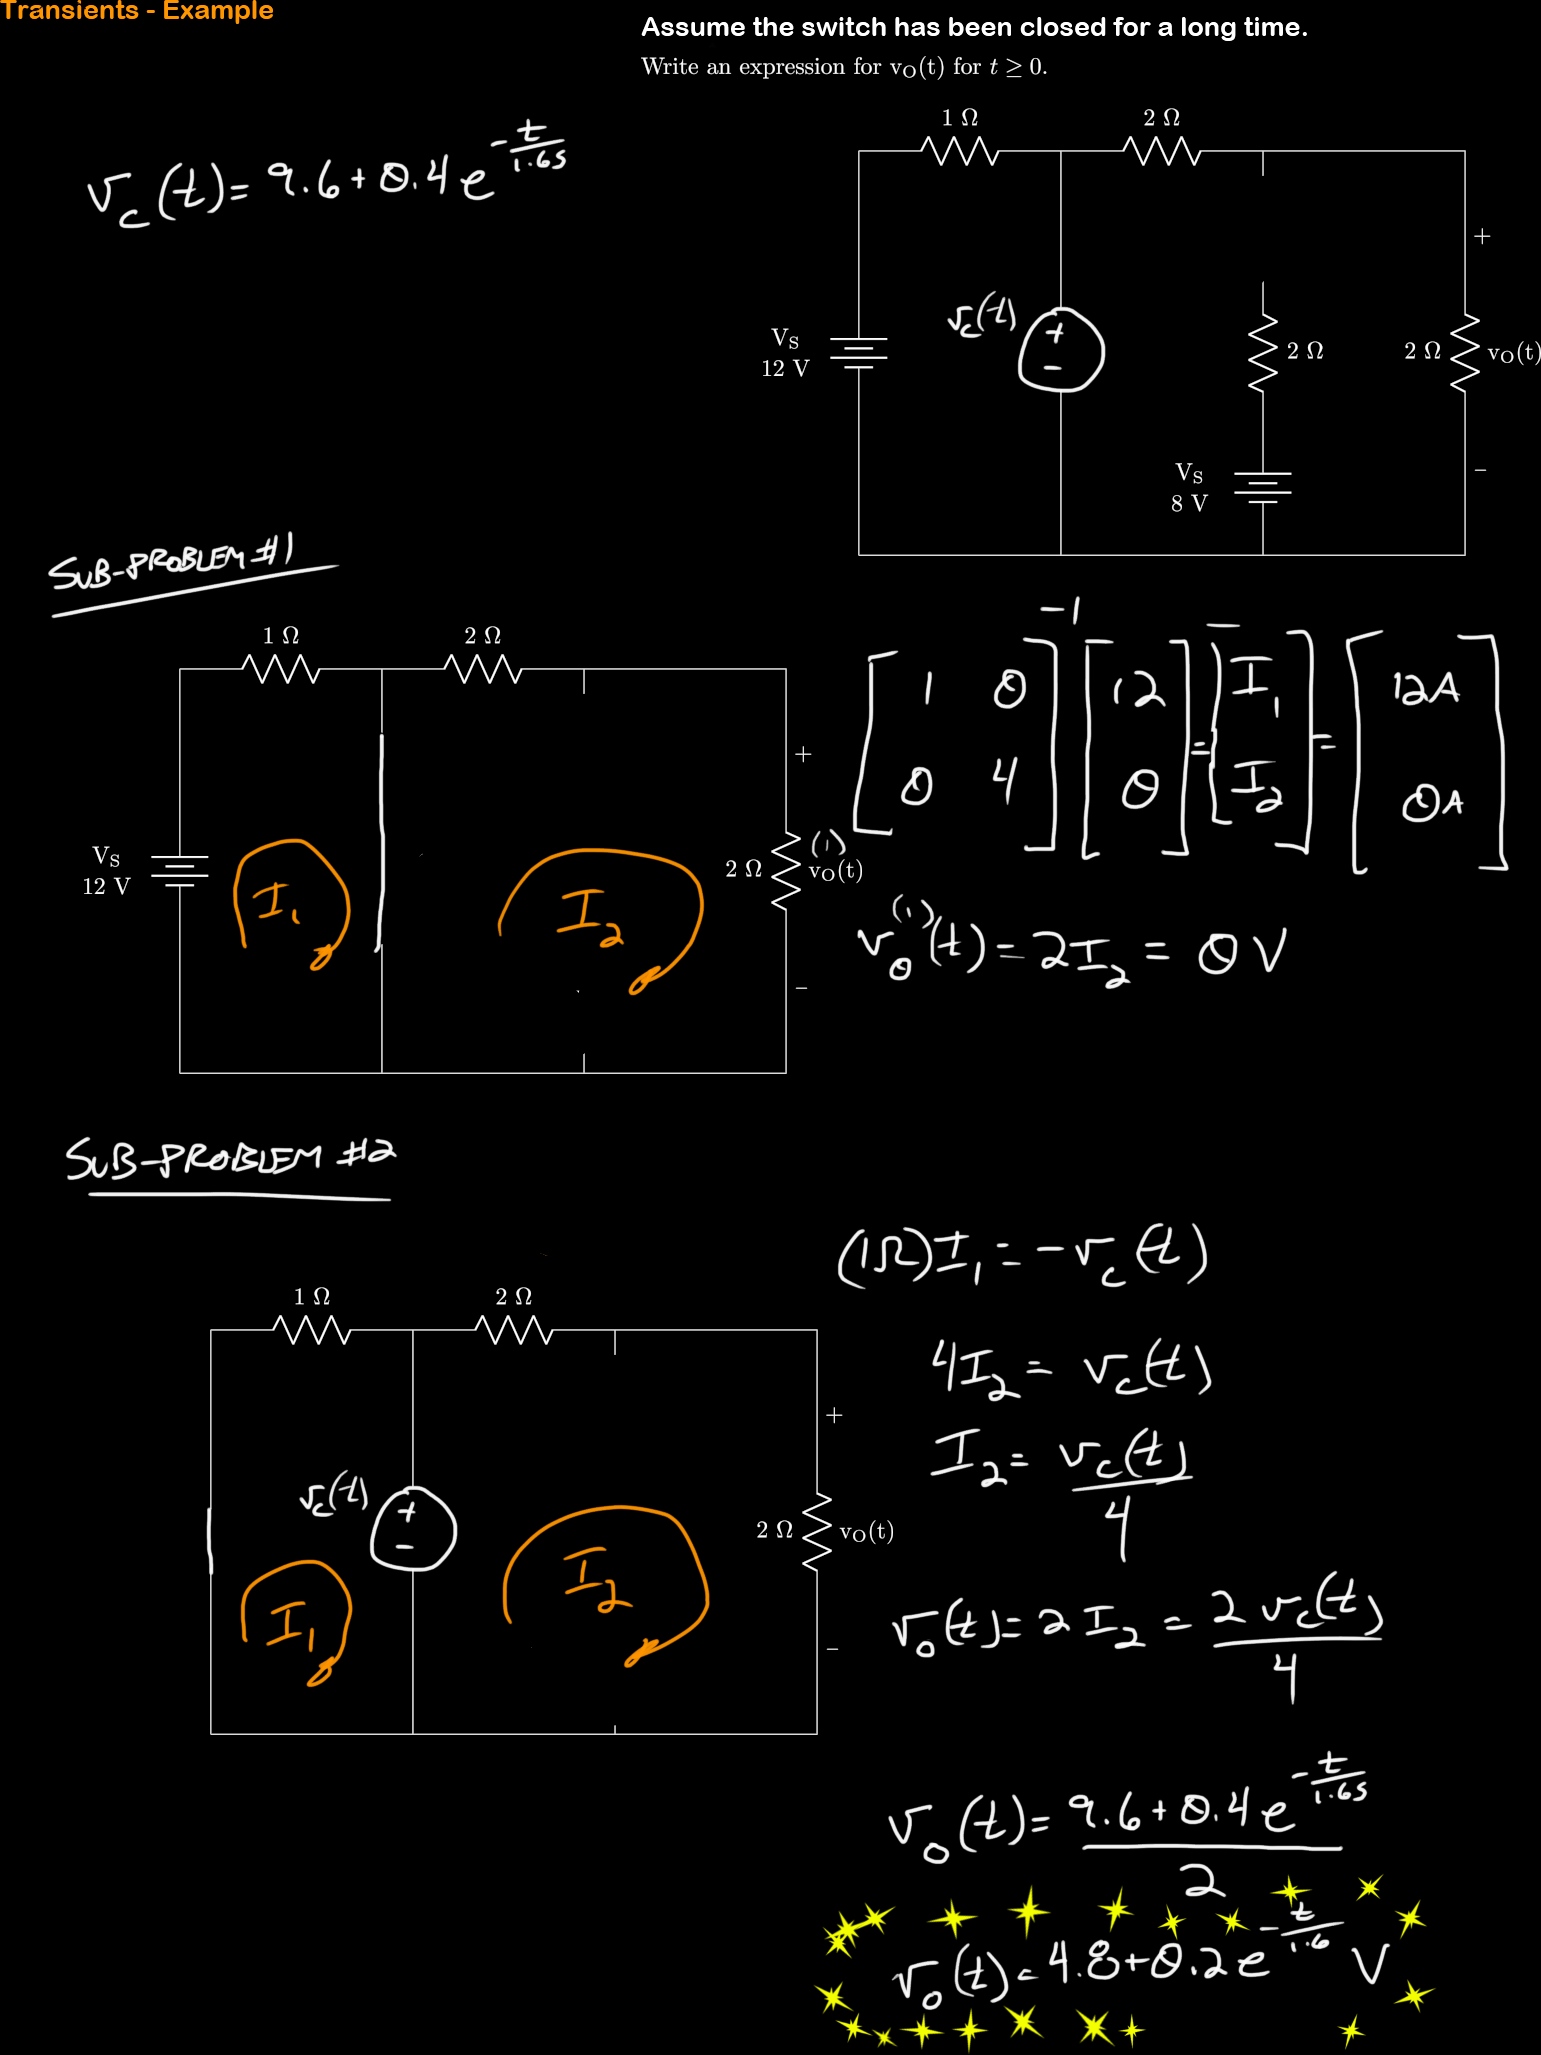 Transients - Example
Assume the switch has been closed for a long time.
Write an expression for v_O(t) for t ≥ 0.
v_c(t) = 9.6 + 0.4 e^{-t/1.6s}
1 Ω
2 Ω
+
v_c(t)
+
-
V_S
12 V
2 Ω
2 Ω
v_O(t)
V_S
8 V
−
SUB-PROBLEM #1
1 Ω
2 Ω
+
V_S
12 V
I_1
I_2
2 Ω
(1)
v_O(t)
−
[1 0; 0 4]^{-1} [12; 0] = [I_1; I_2] = [12A; 0A]
v_0^{(1)}(t) = 2I_2 = 0 V
SUB-PROBLEM #2
1 Ω
2 Ω
+
v_c(t)
+
-
I_1
I_2
2 Ω
v_O(t)
−
(1Ω)I_1 = -v_c(t)
4I_2 = v_c(t)
I_2 = v_c(t)/4
v_o(t) = 2 I_2 = 2 v_c(t)/4
v_o(t) = (9.6 + 0.4 e^{-t/1.6s})/2
v_o(t) = 4.8 + 0.2 e^{-t/1.6} V